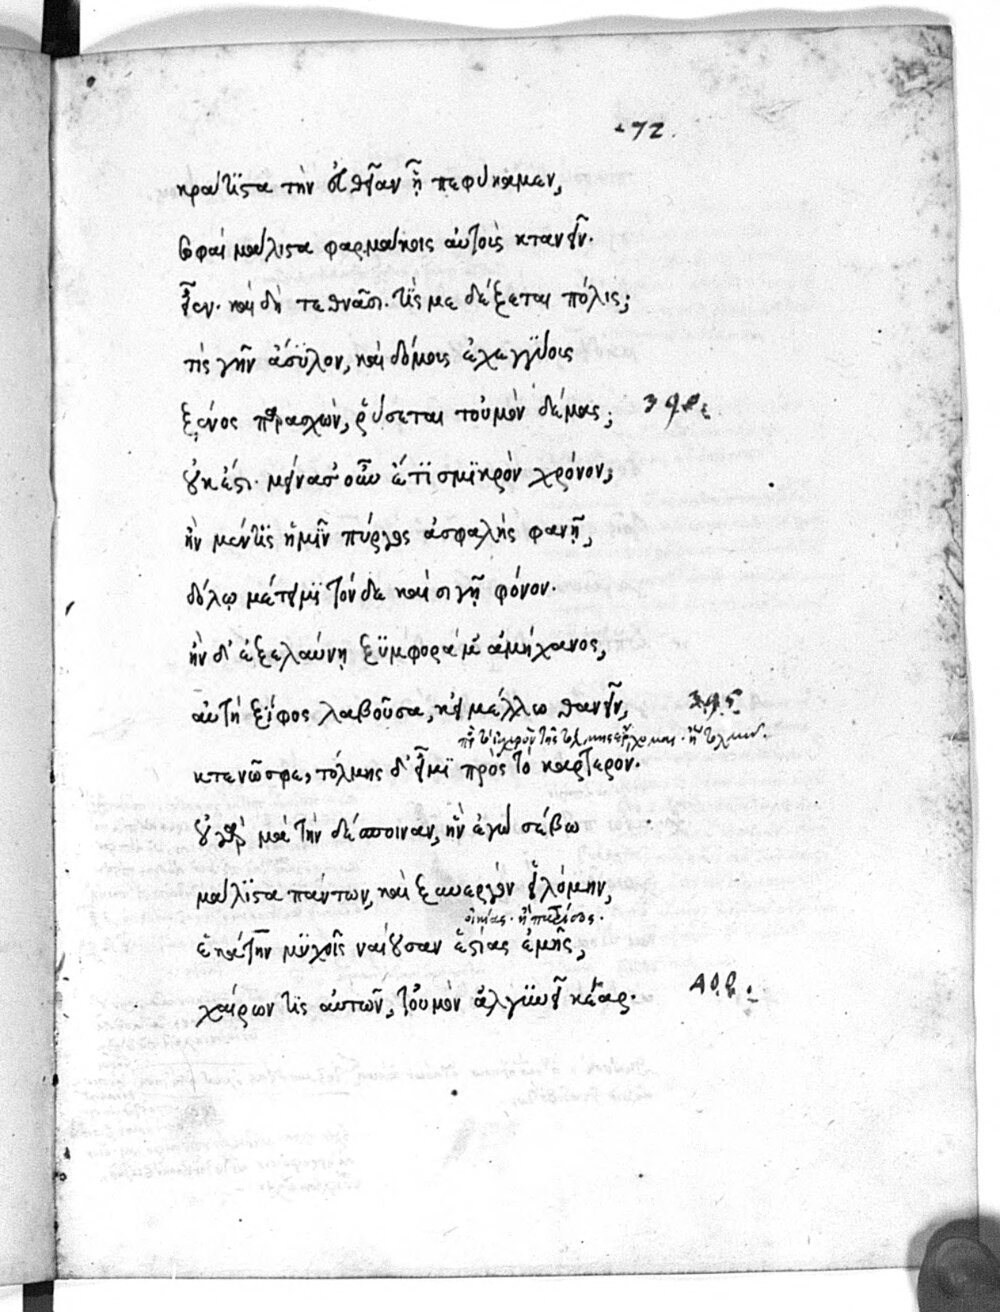 72
κράτιστα τὴν εὐθεῖαν ᾗ πεφύκαμεν,
σοφαὶ μάλιστα φαρμάκοις αὐτοὺς κτανεῖν.
εἶεν. καὶ δὴ τεθνᾶσι. τίς με δέξεται πόλις;
τίς γῆν ἄσυλον, καὶ δόμους ἐχεγγύους
ξένος παρασχὼν, ῥύσεται τοὐμὸν δέμας;
οὐκ ἔστι. μείνασ' οὖν ἔτι σμικρὸν χρόνον;
ἢν μέν τις ἡμῖν πύργος ἀσφαλὴς φανῇ,
δόλῳ μέτειμι τόνδε καὶ σιγῇ φόνον.
ἢν δ' ἐξελαύνῃ ξυμφορά μ' ἀμήχανος,
αὐτὴ ξίφος λαβοῦσα, κεἰ μέλλω θανεῖν, 395
κτενῶ σφε, τόλμης δ' εἶμι πρὸς τὸ καρτερόν.
οὐ γὰρ μὰ τὴν δέσποιναν, ἣν ἐγὼ σέβω
μάλιστα πάντων, καὶ ξυνεργὸν εἱλόμην,
οἰκίας. ἢ
ἑκάτην μυχοῖς ναίουσαν ἑστίας ἐμῆς,
χαίρων τις αὐτῶν, τοὐμὸν ἀλγυνεῖ κέαρ. 400